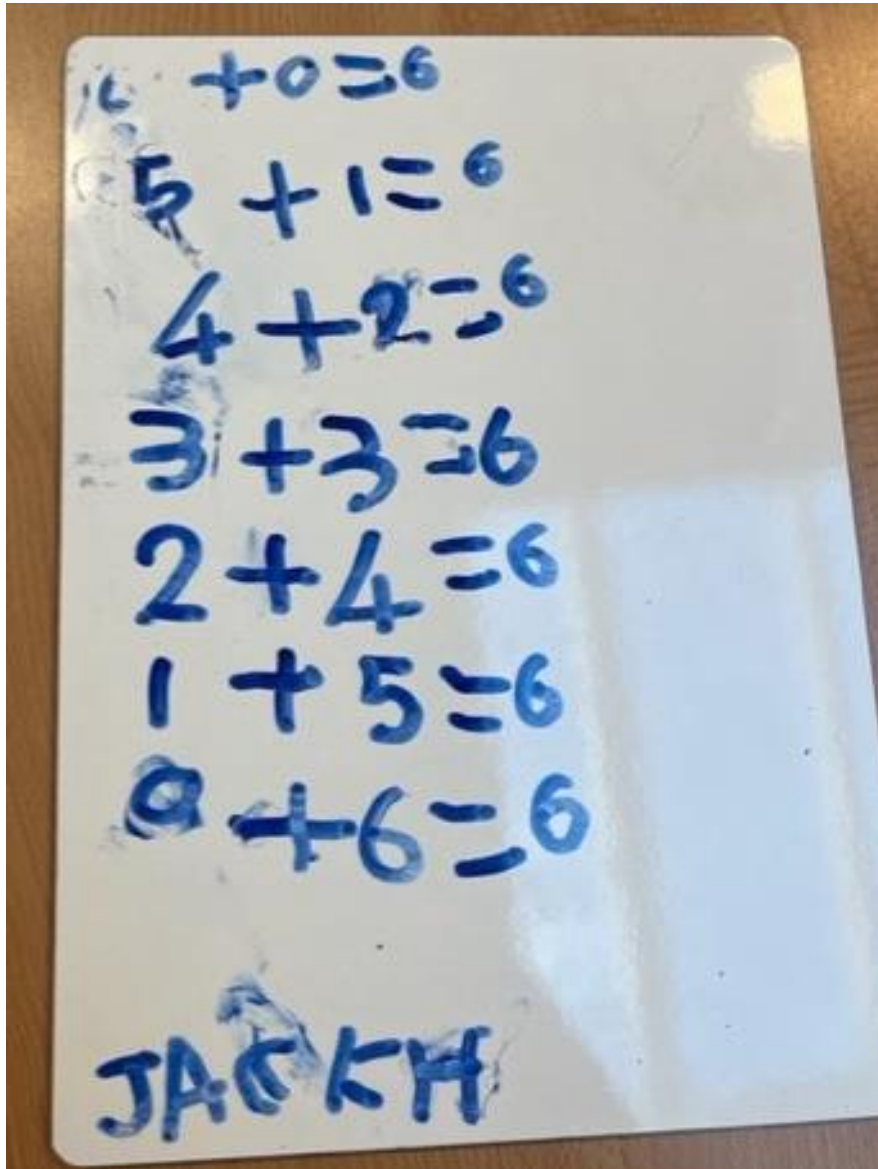 6 +0=6
5 +1=6
4+2=6
3+3=6
2+4=6
1+5=6
0+6=6
JACK H